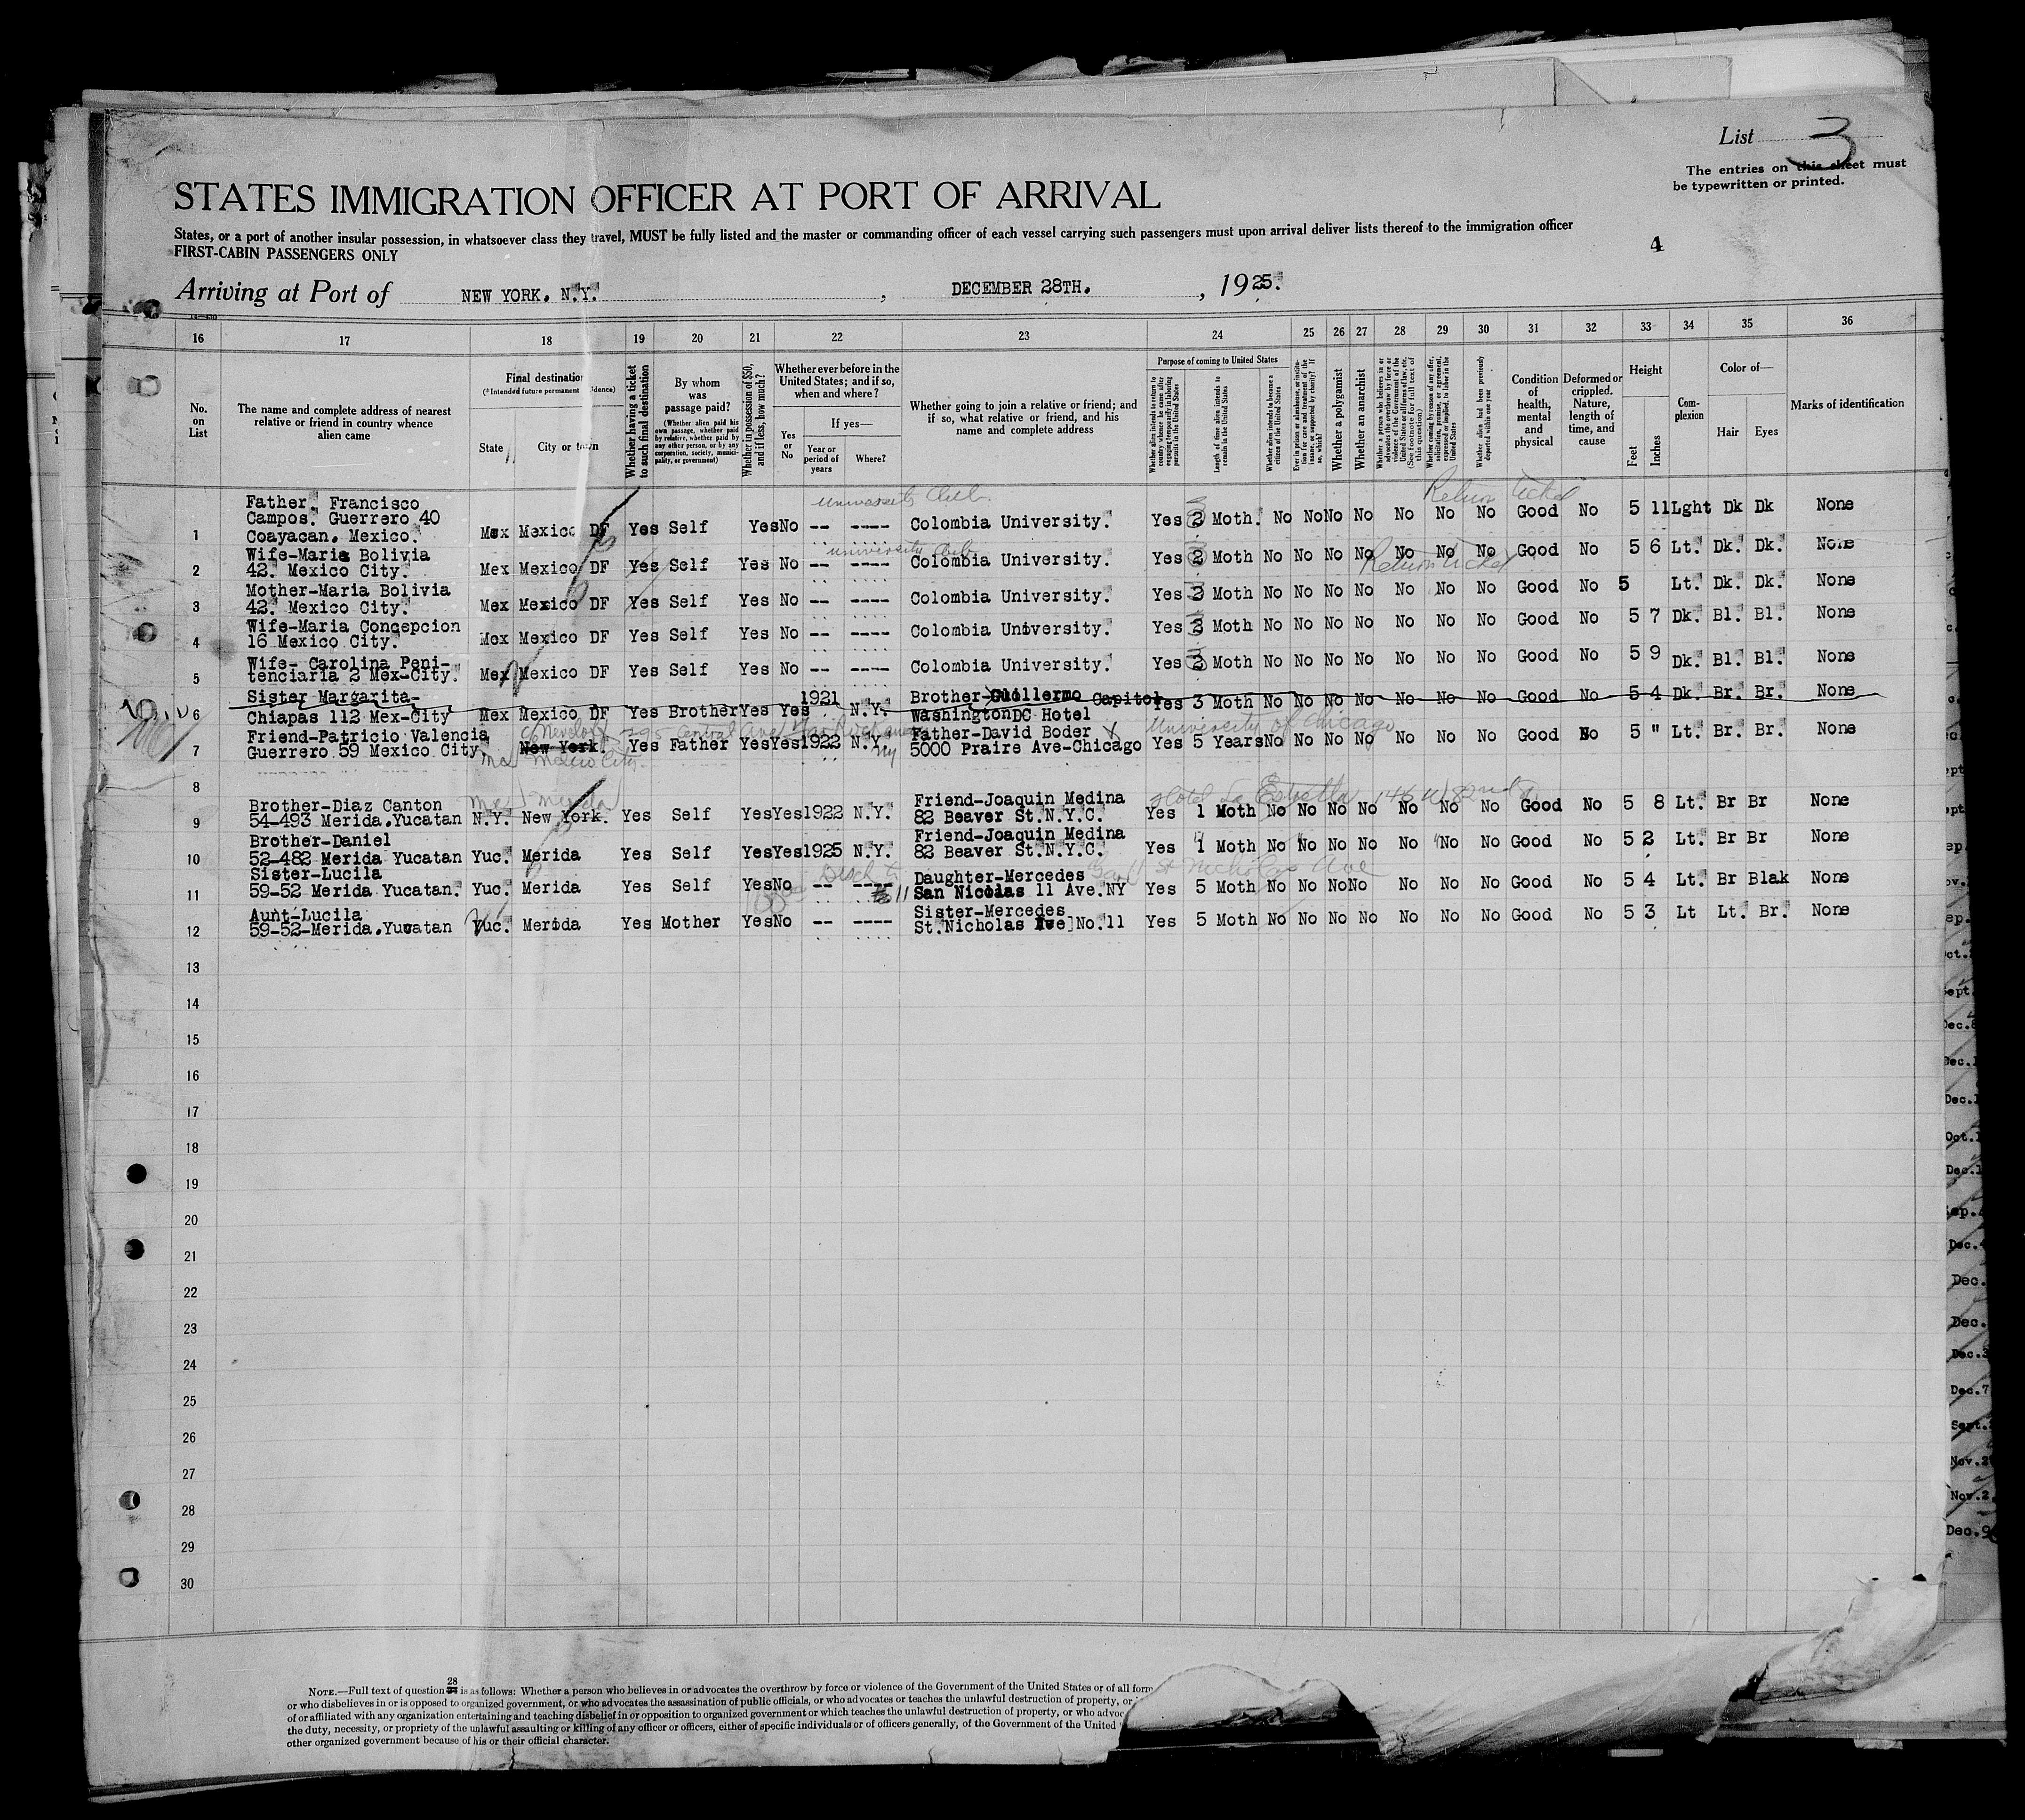 List 3
The entries on this sheet must
be typewritten or printed.
STATES IMMIGRATION OFFICER AT PORT OF ARRIVAL
States, or a port of another insular possession, in whatsoever class they travel, MUST be fully listed and the master or commanding officer of each vessel carrying such passengers must upon arrival deliver lists thereof to the immigration officer
FIRST-CABIN PASSENGERS ONLY
4
Arriving at Port of NEW YORK. N.Y. , DECEMBER 28TH. , 1925.
16 17 18 19 20 21 22 23 24 25 26 27 28 29 30 31 32 33 34 35 36
No. on List
The name and complete address of nearest relative or friend in country whence alien came
Final destination
State
City or town
Whether having a ticket to such final destination
By whom was passage paid?
(Whether alien paid his own passage, whether paid by relative, whether paid by any other person, or by any corporation, society, municipality, or government)
Whether in possession of $50, and if less, how much?
Whether ever before in the United States; and if so, when and where?
Yes or No
If yes—
Year or period of years
Where?
Whether going to join a relative or friend; and if so, what relative or friend, and his name and complete address
Purpose of coming to United States
Length of time alien intends to remain in the United States
Whether alien intends to become a citizen of the United States
Whether a polygamist
Whether an anarchist
Whether alien had been previously deported within one year
Condition of health, mental and physical
Deformed or crippled. Nature, length of time, and cause
Height
Feet
Inches
Complexion
Color of—
Hair
Eyes
Marks of identification
University Club Return Ticket
Father. Francisco
Campos. Guerrero 40
1 Coayacan. Mexico. Mex Mexico DF Yes Self Yes No -- ---- Colombia University. Yes 2 Moth. No No No No No No No Good No 5 11 Lght Dk Dk None
University Club Return Ticket
Wife-Maria Bolivia
2 42. Mexico City. Mex Mexico DF Yes Self Yes No -- ---- Colombia University. Yes 2 Moth No No No No No No No Good No 5 6 Lt. Dk. Dk. None
Mother-Maria Bolivia
3 42. Mexico City. Mex Mexico DF Yes Self Yes No -- ---- Colombia University. Yes 2 Moth No No No No No No No Good No 5 Lt. Dk. Dk. None
Wife-Maria Concepcion
4 16 Mexico City. Mex Mexico DF Yes Self Yes No -- ---- Colombia University. Yes 2 Moth No No No No No No No Good No 5 7 Dk. Bl. Bl. None
Wife- Carolina Peni-
5 tenciaria 2 Mex-City. Mex Mexico DF Yes Self Yes No -- ---- Colombia University. Yes 2 Moth No No No No No No No Good No 5 9 Dk. Bl. Bl. None
Sister Margarita- 1921 Brother-Guillermo Capitol
6 Chiapas 112 Mex-City Mex Mexico DF Yes Brother Yes Yes N.Y. Washington DC Hotel Yes 3 Moth No No No No No No No Good No 5 4 Dk. Br. Br. None
University of Chicago
Friend-Patricio Valencia Father-David Boder
7 Guerrero 59 Mexico City New York. Yes Father Yes Yes 1922 N.Y. 5000 Praire Ave-Chicago Yes 5 Years No No No No No No No Good No 5 " Lt. Br. Br. None
Mexico City
8
Merida Hotel La Estrella 146 W 82nd St
Brother-Diaz Canton Friend-Joaquin Medina
9 54-493 Merida.Yucatan N.Y. New York. Yes Self Yes Yes 1922 N.Y. 82 Beaver St.N.Y.C. Yes 1 Moth No No No No No No No Good No 5 8 Lt. Br Br None
Brother-Daniel Friend-Joaquin Medina
10 52-482 Merida Yucatan Yuc. Merida Yes Self Yes Yes 1925 N.Y. 82 Beaver St.N.Y.C. Yes 1 Moth No No No No No No No Good No 5 2 Lt. Br Br None
St Nicholas Ave
Sister-Lucila Daughter-Mercedes
11 59-52 Merida Yucatan. Yuc. Merida Yes Self Yes No -- ---- San Nicolas 11 Ave.NY Yes 5 Moth No No No No No No No Good No 5 4 Lt. Br Blak None
Aunt-Lucila Sister-Mercedes
12 59-52-Merida.Yucatan Yuc. Merida Yes Mother Yes No -- ---- St.Nicholas Ave No.11 Yes 5 Moth No No No No No No No Good No 5 3 Lt Lt. Br. None
13
14
15
16
17
18
19
20
21
22
23
24
25
26
27
28
29
30
28
NOTE.—Full text of question is as follows: Whether a person who believes in or advocates the overthrow by force or violence of the Government of the United States or of all
or who disbelieves in or is opposed to organized government, or who advocates the assassination of public officials, or who advocates or teaches the unlawful destruction of property, or
of or affiliated with any organization entertaining and teaching disbelief in or opposition to organized government or which teaches the unlawful destruction of property, or who
the duty, necessity, or propriety of the unlawful assaulting or killing of any officer or officers, either of specific individuals or of officers generally, of the Government of the United
other organized government because of his or their official character.